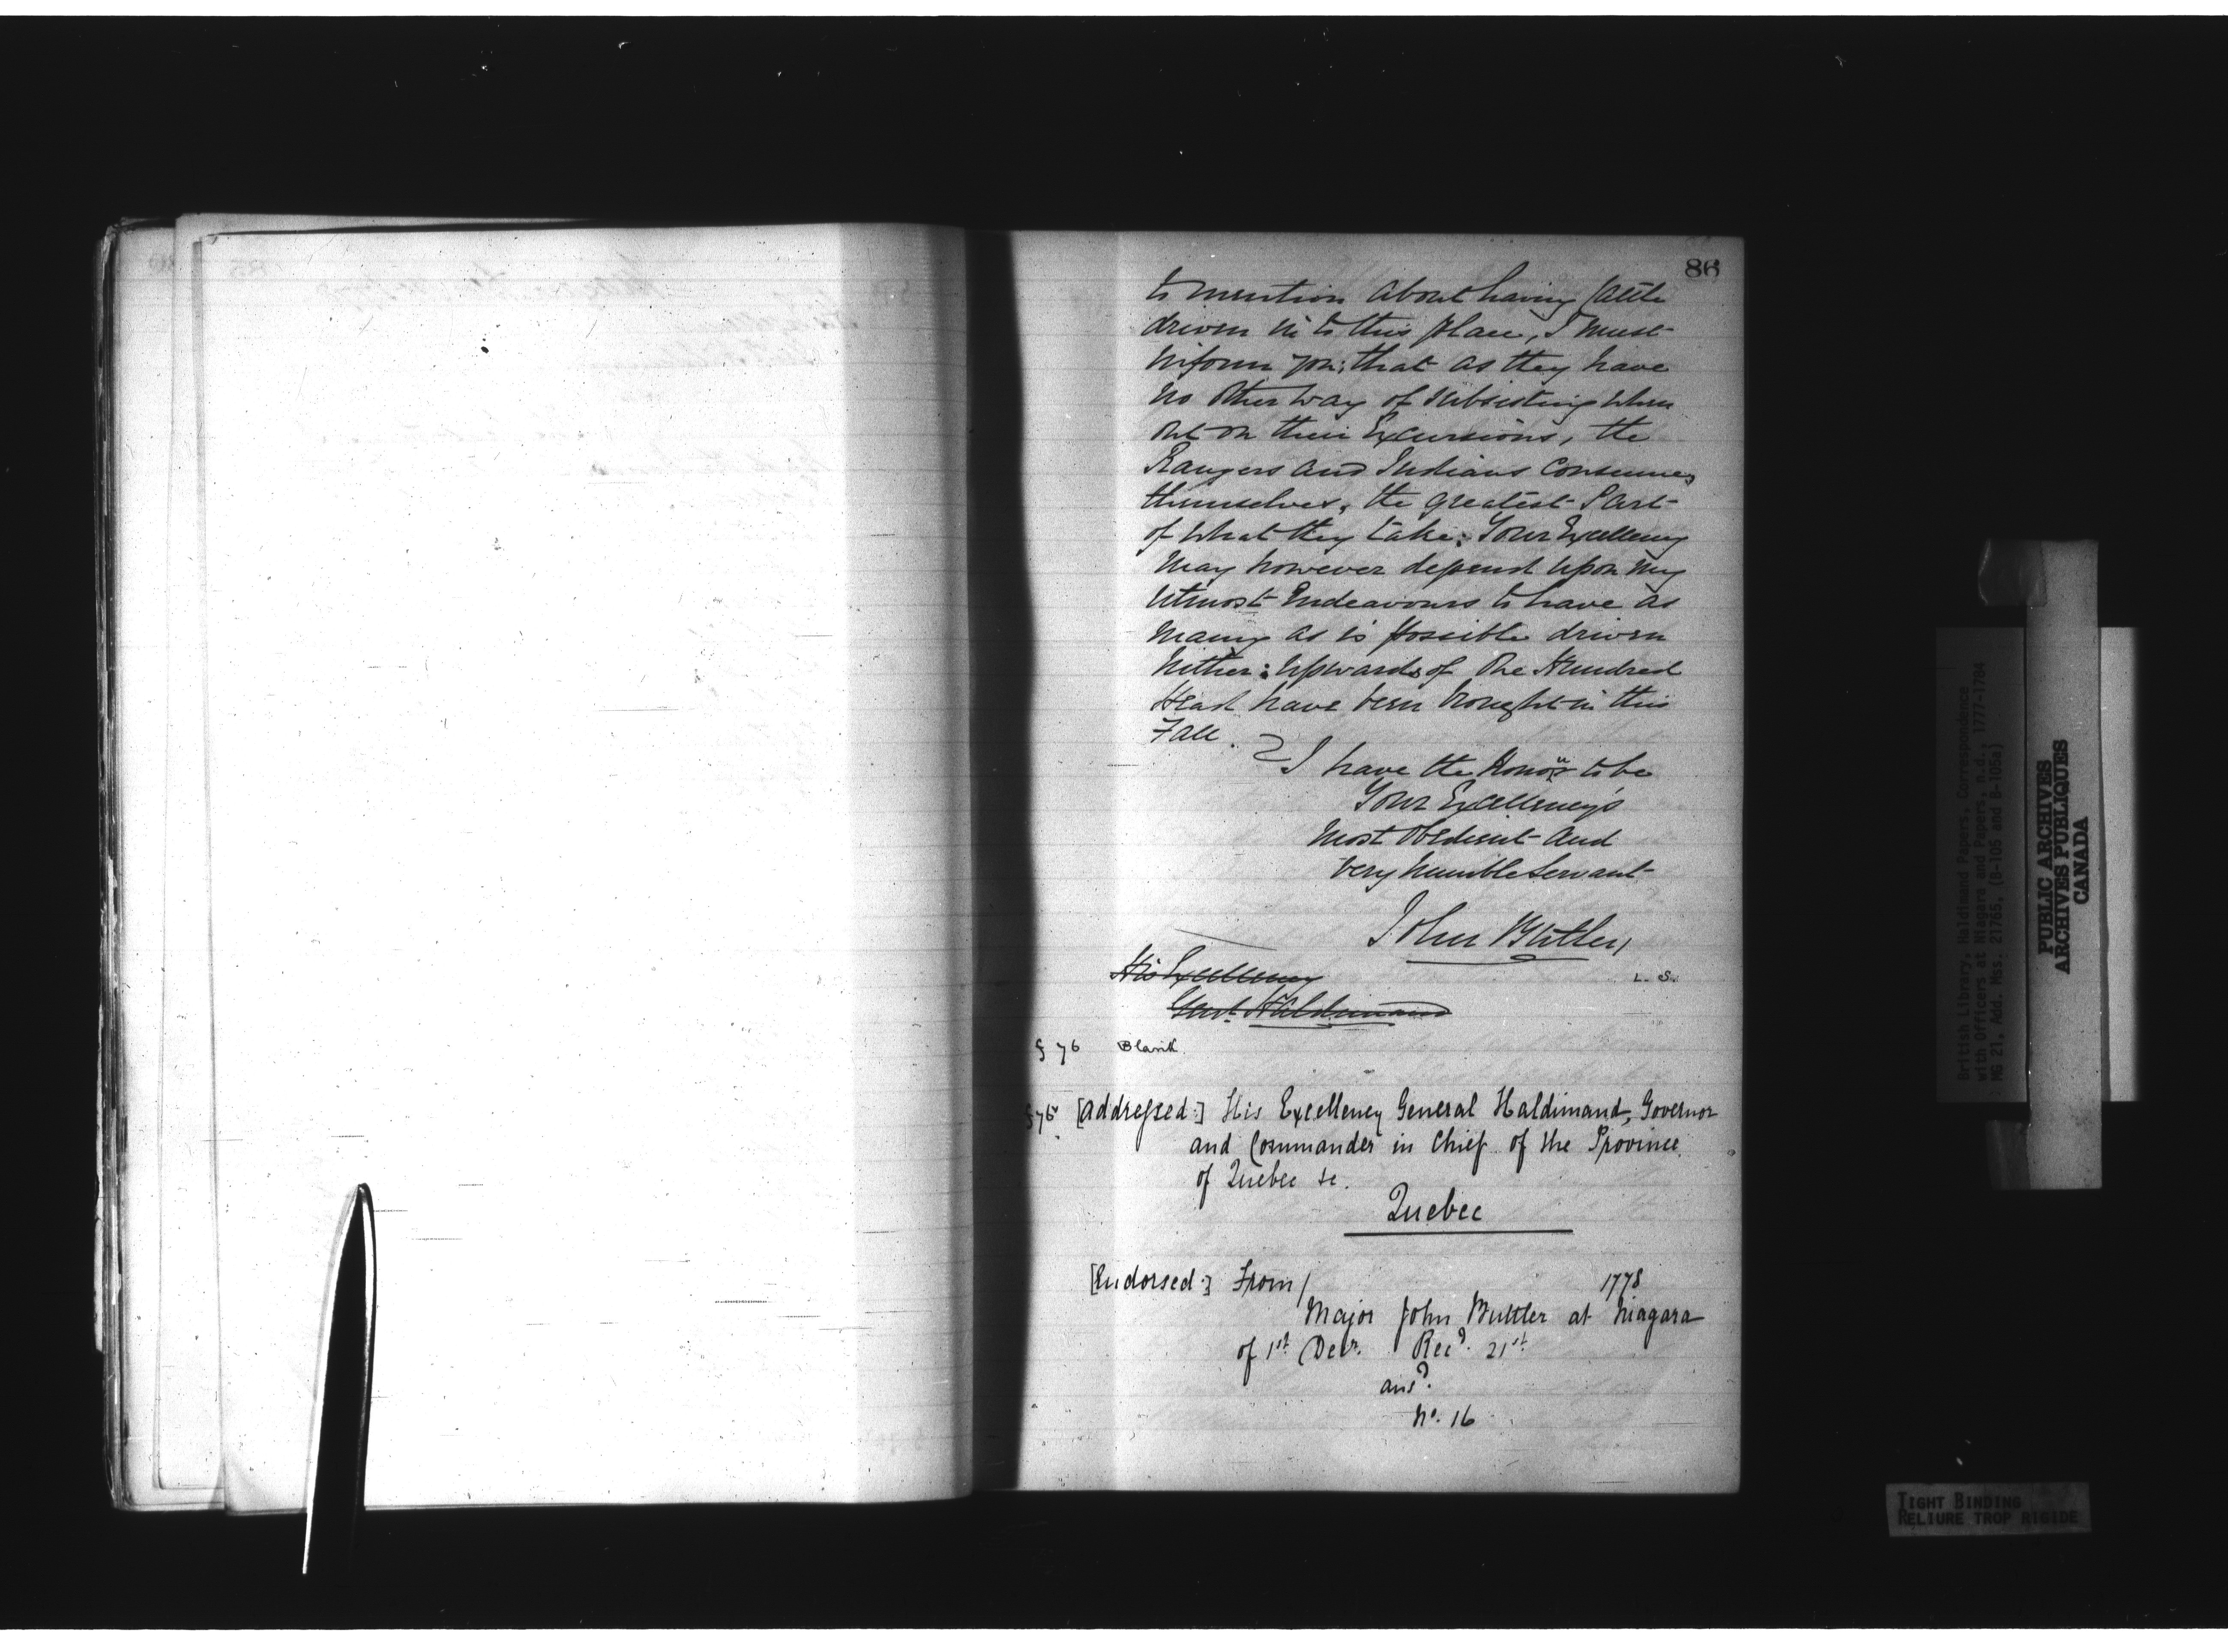 86
to mention about having Cattle
driven in to this place, I must
inform you; that as they have
no other way of subsisting when
out on their Excursions, the
Rangers and Indians Consume,
themselves, the greatest Part
of what they take: Your Excellency
may however depend upon my
utmost Endeavours to have as
many as is possible driven
hither: Upwards of One Hundred
Head have been brought in this
Fall.
I have the Honor to be
Your Excellency's
most Obedient and
very humble Servant
John Butler,
L. S.
His Excellency
Genl. Haldimand
f 76 Blank.
f 76v [Addressed:] His Excellency General Haldimand, Governor
and Commander in Chief of the Province
of Quebec &c.
Quebec
[Endorsed:] From / 1778
Major John Buttler at Niagara
of 1st Decr. Recd. 21st
ansd.
No. 16
British Library, Haldimand Papers, Correspondence
with Officers at Niagara and Papers, n.d., 1777-1784
MG 21, Add. Mss. 21765, (B-105 and B-105a)
PUBLIC ARCHIVES
ARCHIVES PUBLIQUES
CANADA
TIGHT BINDING
RELIURE TROP RIGIDE